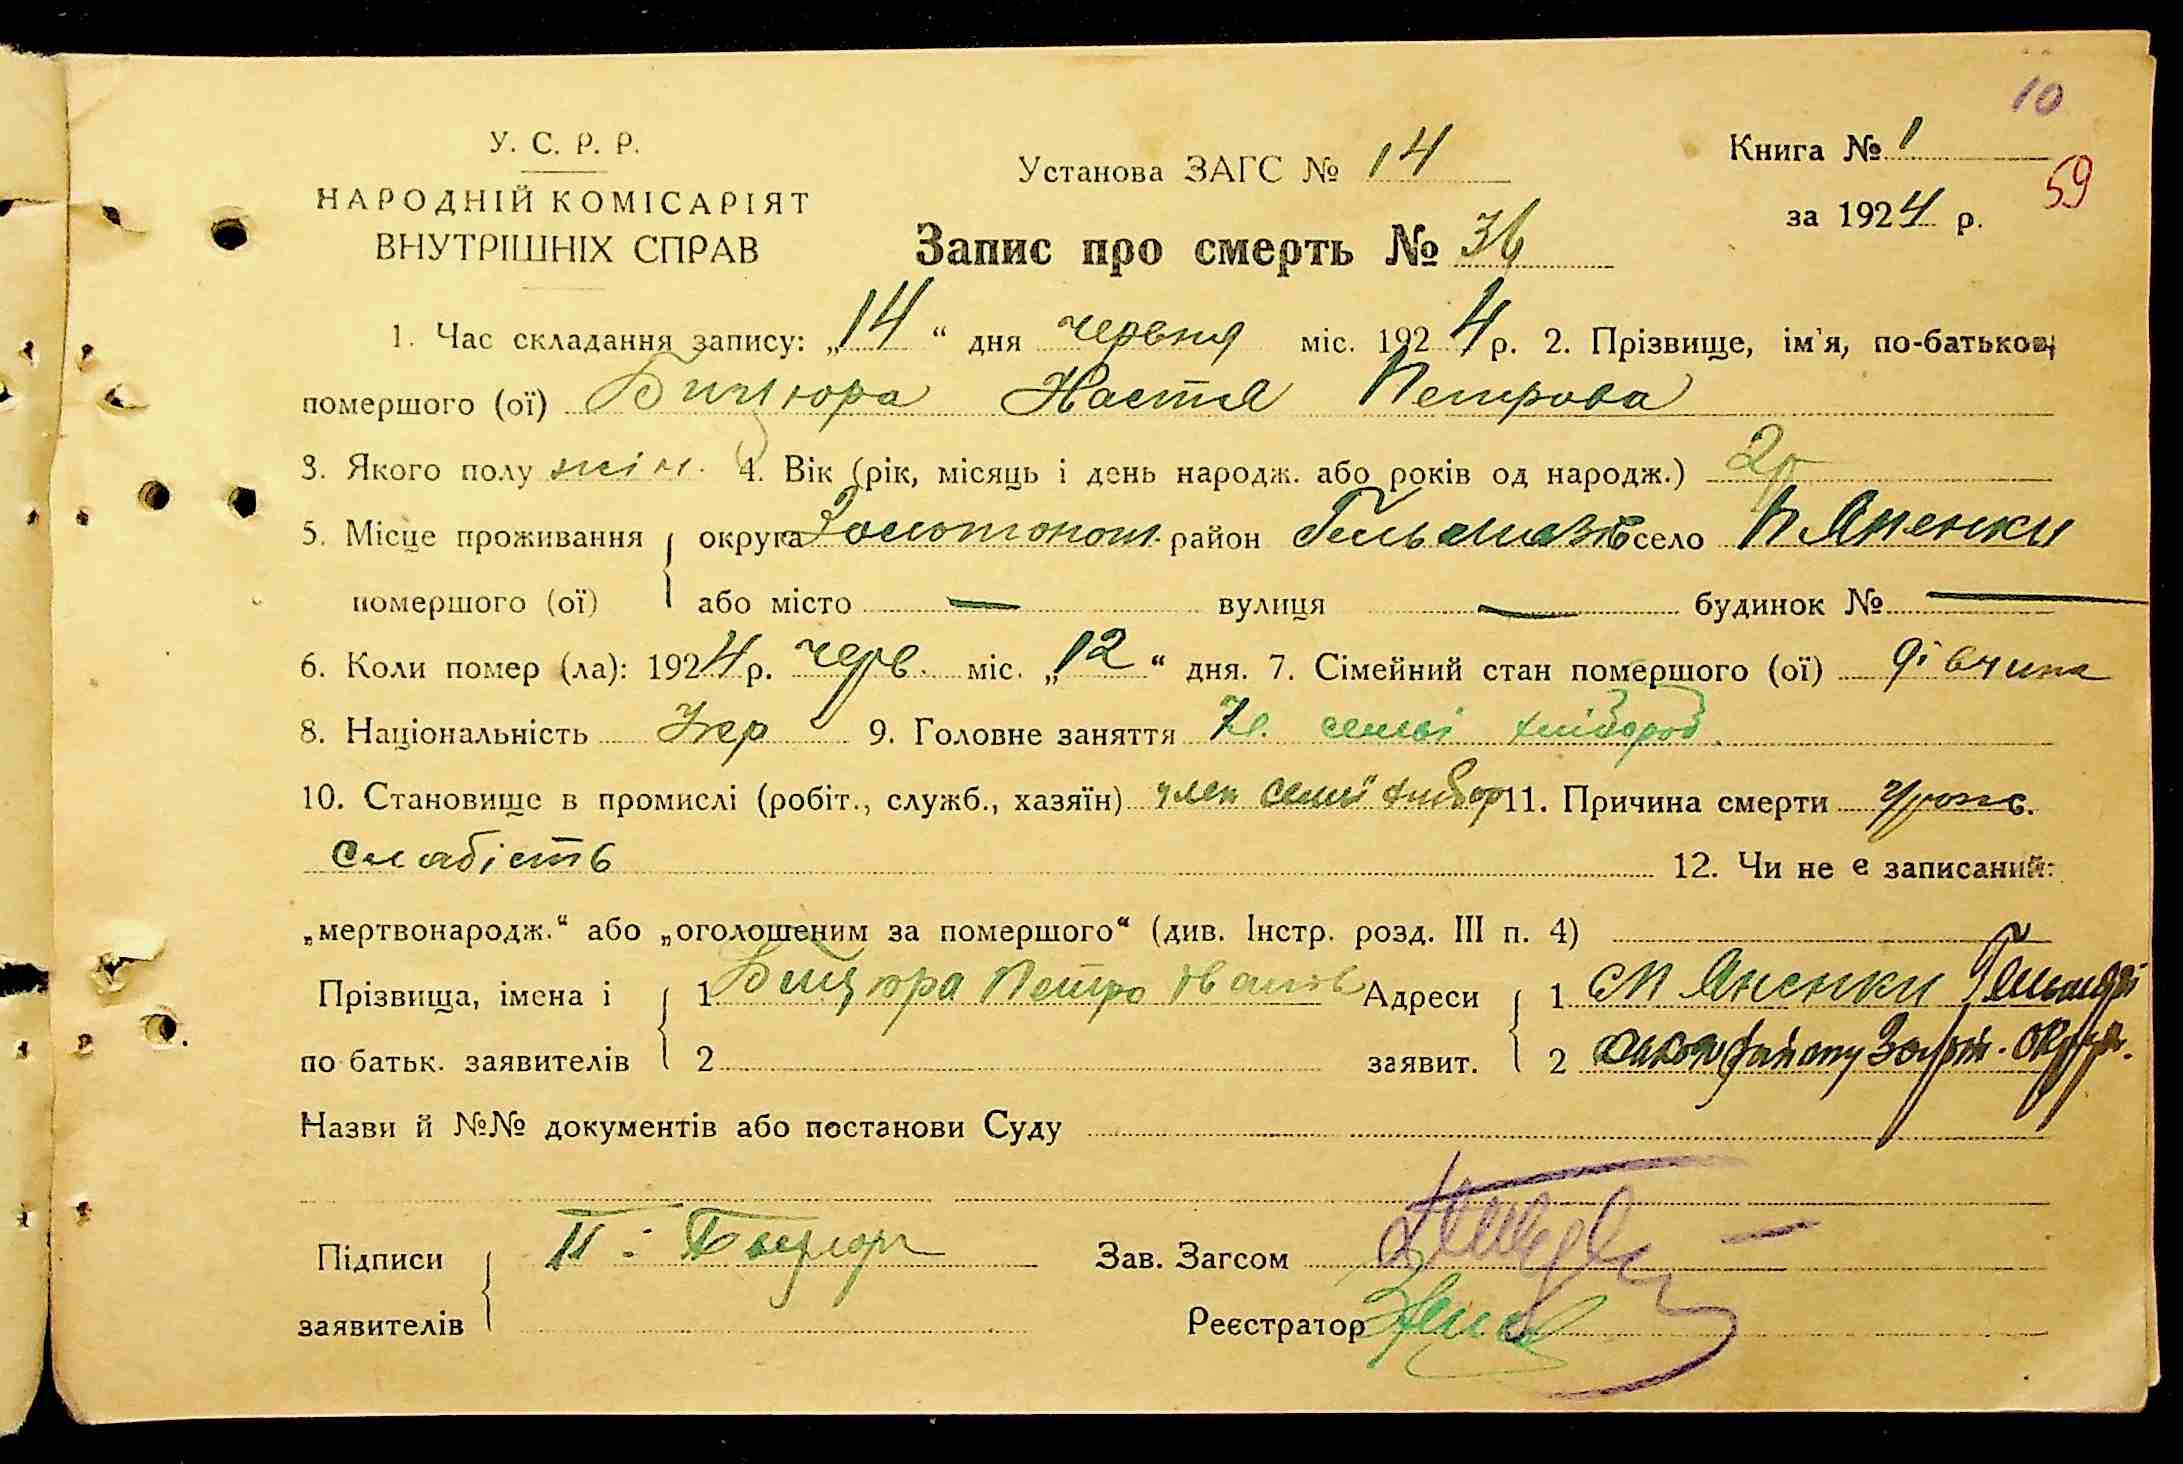 10
У. С. Р. Р.
НАРОДНІЙ КОМІСАРІЯТ
ВНУТРІШНІХ СПРАВ
Установа ЗАГС № 14
Книга № 1
за 1924 р.
59
Запис про смерть № 36
1. Час складання запису: „14“ дня червня міс. 1924 р. 2. Прізвище, ім'я, по-батькові
помершого (ої) Бицюра Настя Петрова
3. Якого полу жін. 4. Вік (рік, місяць і день народж. або років од народж.) 2р
5. Місце проживання округа Золотонош. район Гельмязів село Пʼяненки
помершого (ої) або місто — вулиця — будинок № —
6. Коли помер (ла): 1924 р. черв. міс. „12“ дня. 7. Сімейний стан помершого (ої) дівчина
8. Національність Укр 9. Головне заняття Чл. семьї хлібороб.
10. Становище в промислі (робіт., служб., хазяїн) член семьї хлібор 11. Причина смерти
слабість 12. Чи не є записаний:
„мертвонародж.“ або „оголошеним за помершого“ (див. Інстр. розд. III п. 4)
Прізвища, імена і 1 Бицюра Петро Іванов Адреси 1
по батьк. заявителів 2 заявит. 2 району Золот. округи.
Назви й №№ документів або постанови Суду
Підписи П. Зав. Загсом
заявителів Реєстратор